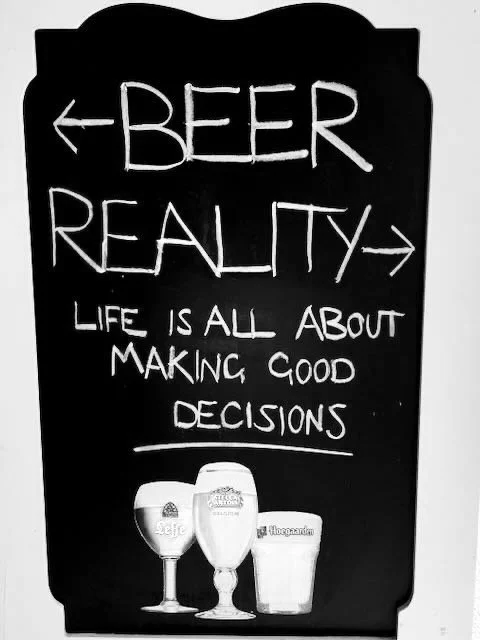 ← BEER
REALITY →
LIFE IS ALL ABOUT
MAKING GOOD
DECISIONS
Leffe
STELLA
ARTOIS
Hoegaarden